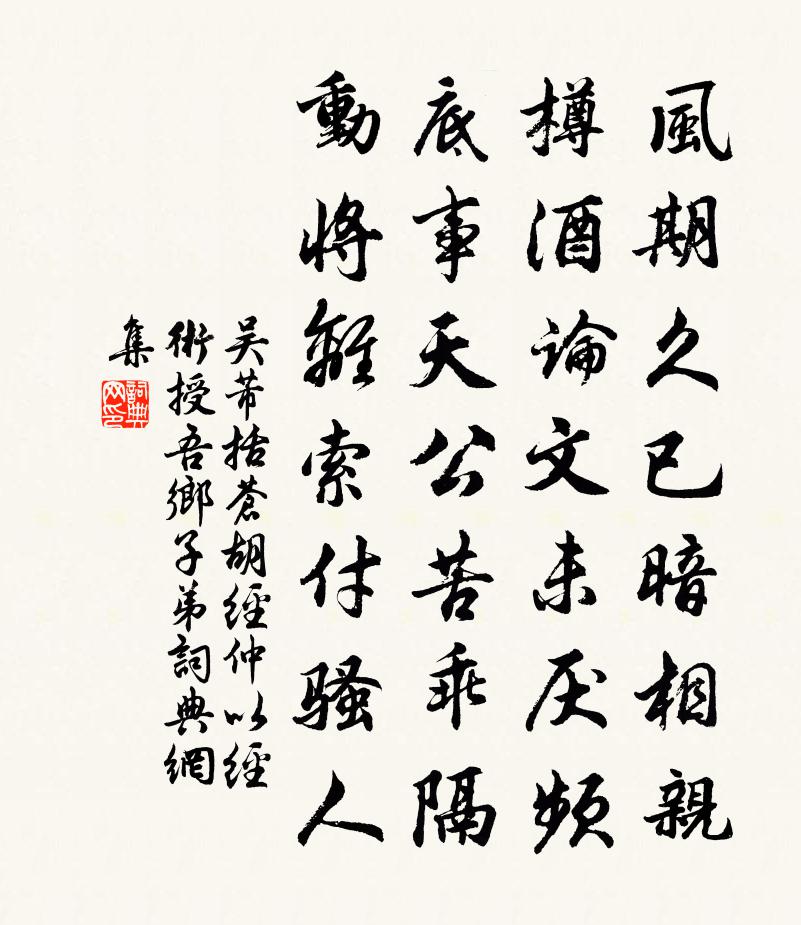 風期久已暗相親
樽酒論文未厌頻
底事天公苦乖隔
動將離索付騷人
吴芾括蒼胡經仲以經
術授吾鄉子弟詞典網
集
詞典网印